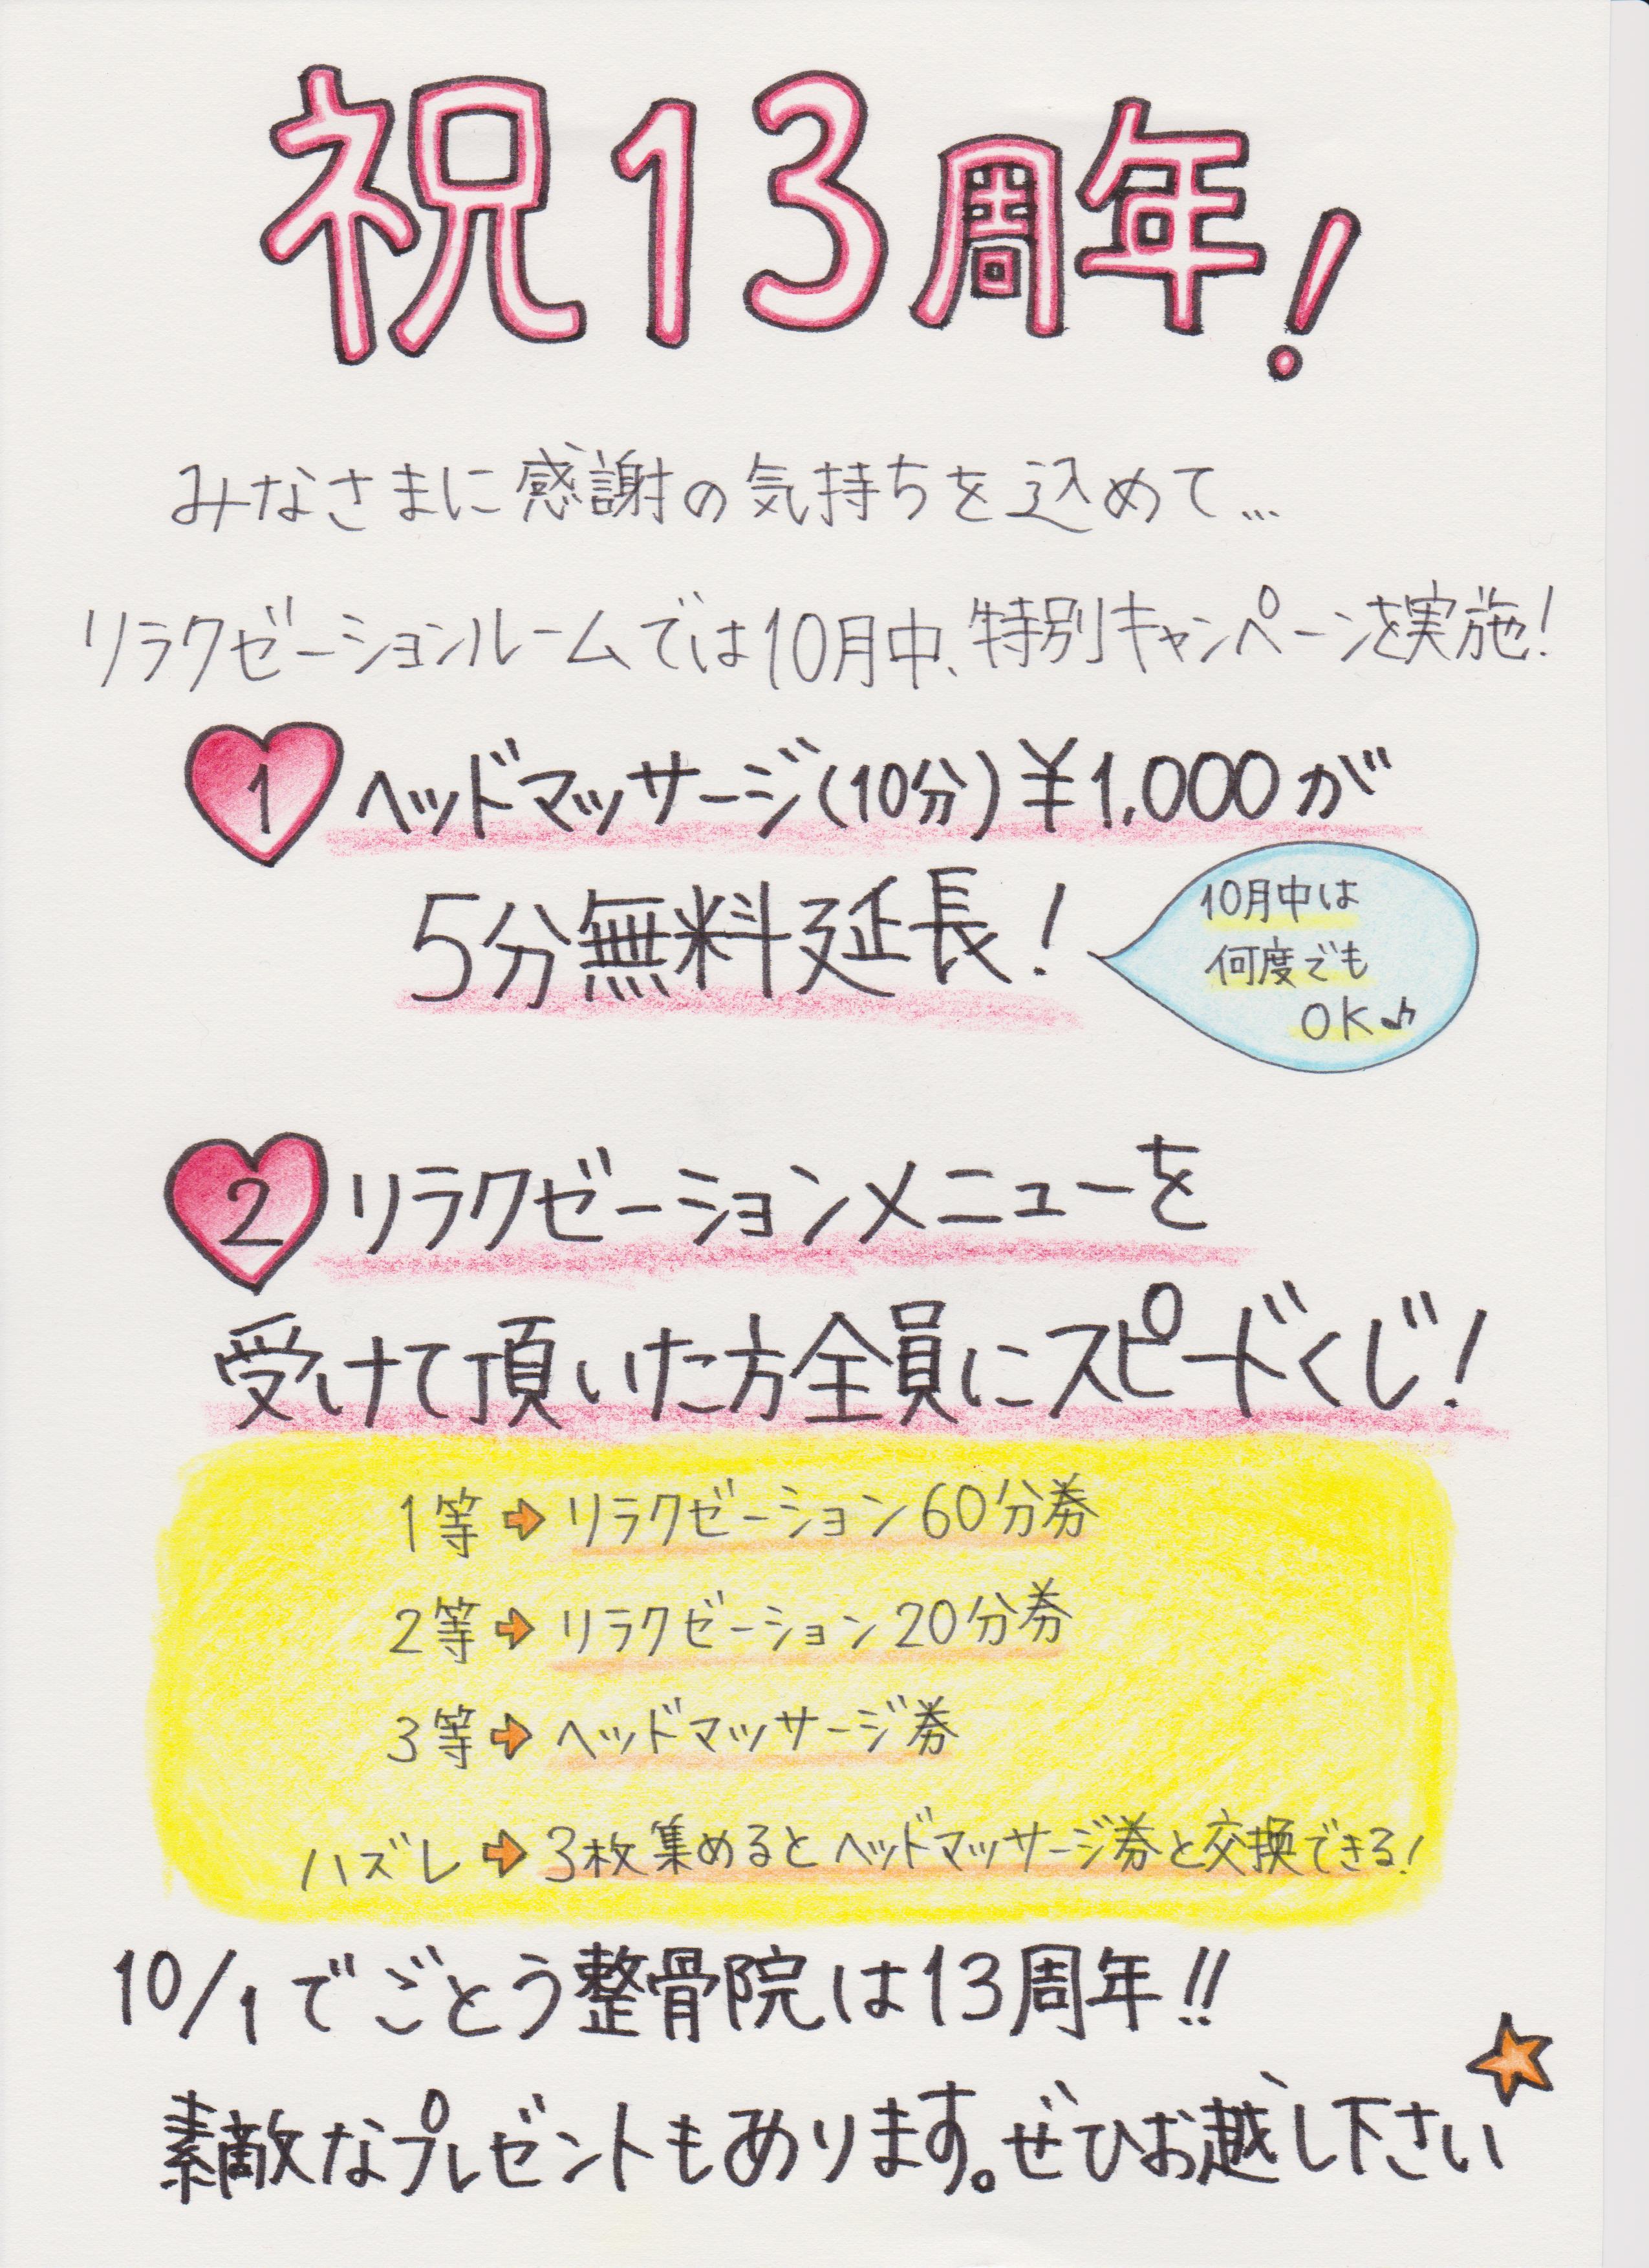 祝13周年!
みなさまに感謝の気持ちを込めて…
リラクゼーションルームでは10月中、特別キャンペーンを実施!
1 ヘッドマッサージ(10分)¥1,000が
5分無料延長!
10月中は
何度でも
OK♪
2 リラクゼーションメニューを
受けて頂いた方全員にスピードくじ!
1等➡リラクゼーション60分券
2等➡リラクゼーション20分券
3等➡ヘッドマッサージ券
ハズレ➡3枚集めるとヘッドマッサージ券と交換できる!
10/1でごとう整骨院は13周年!!
素敵なプレゼントもあります。ぜひお越し下さい